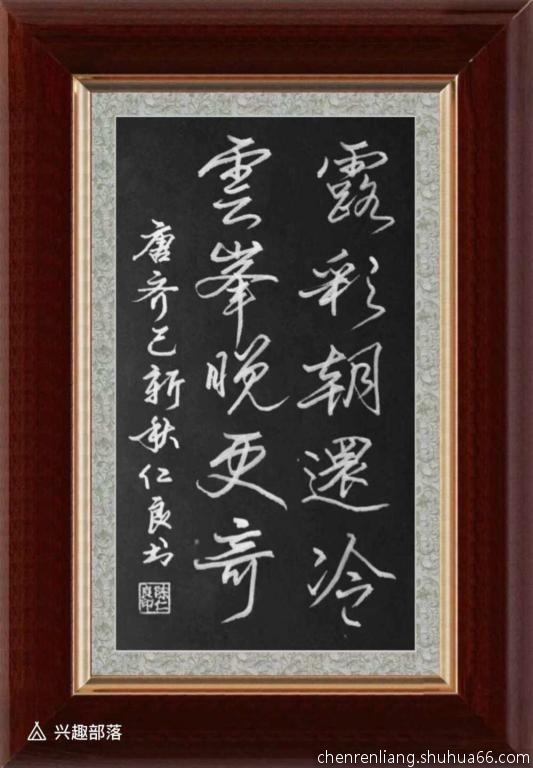 露彩朝還冷
雲峯晚更奇
唐齐己新秋仁良书
陈仁良印
兴趣部落
chenrenliang.shuhua66.com